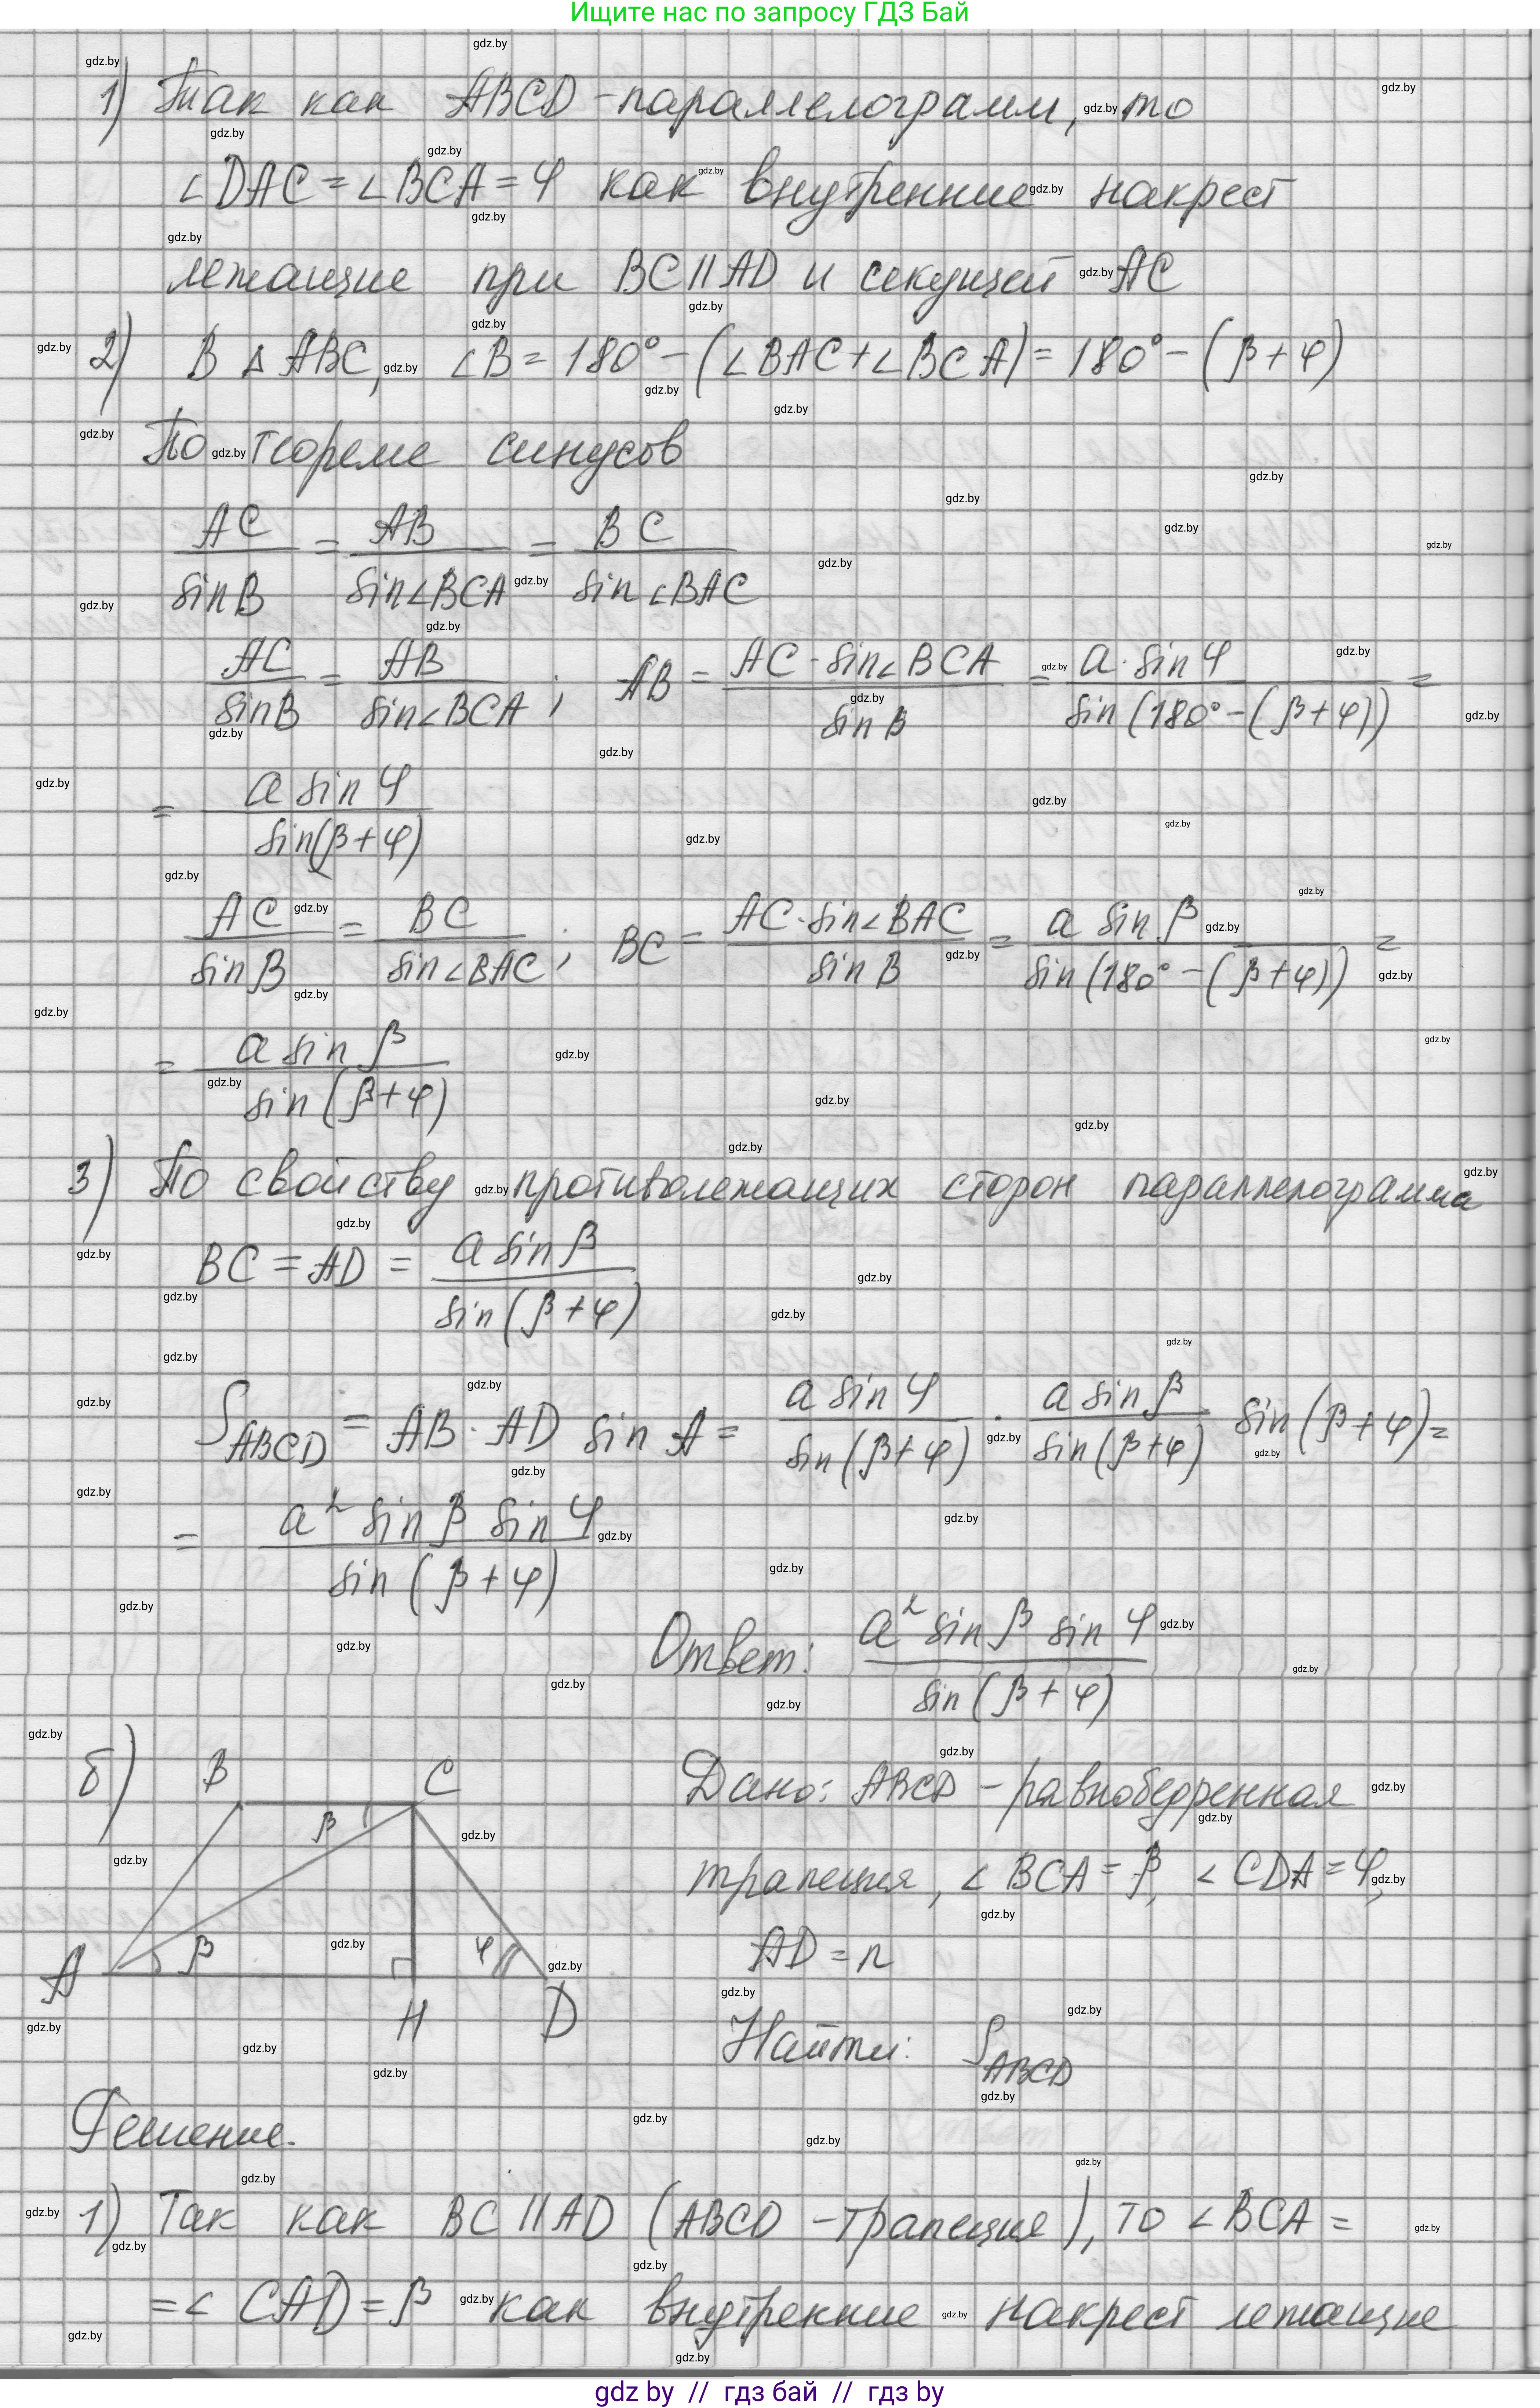 Ищите нас по запросу ГДЗ Бай
1) Так как ABCD - параллелограмм, то
∠DAC = ∠BCA = φ как внутренние накрест
лежащие при BC || AD и секущей AC
2) В △ ABC, ∠B = 180° - (∠BAC + ∠BCA) = 180° - (β + φ)
По теореме синусов
AC / sin B = AB / sin∠BCA = BC / sin∠BAC
AC / sin B = AB / sin∠BCA ; AB = AC · sin∠BCA / sin B = a · sin φ / sin(180° - (β + φ)) =
= a sin φ / sin(β + φ)
AC / sin B = BC / sin∠BAC ; BC = AC · sin∠BAC / sin B = a sin β / sin(180° - (β + φ)) =
= a sin β / sin(β + φ)
3) По свойству противолежащих сторон параллелограмма
BC = AD = a sin β / sin(β + φ)
S ABCD = AB · AD sin A = a sin φ / sin(β + φ) · a sin β / sin(β + φ) sin(β + φ) =
= a² sin β sin φ / sin(β + φ)
Ответ: a² sin β sin φ / sin(β + φ)
б) B C
β
A β φ
H D
Дано: ABCD - равнобедренная
трапеция, ∠BCA = β, ∠CDA = φ,
AD = n
Найти: S ABCD
Решение.
1) Так как BC || AD (ABCD - трапеция), то ∠BCA =
= ∠CAD = β как внутренние накрест лежащие
gdz by // гдз бай // гдз by